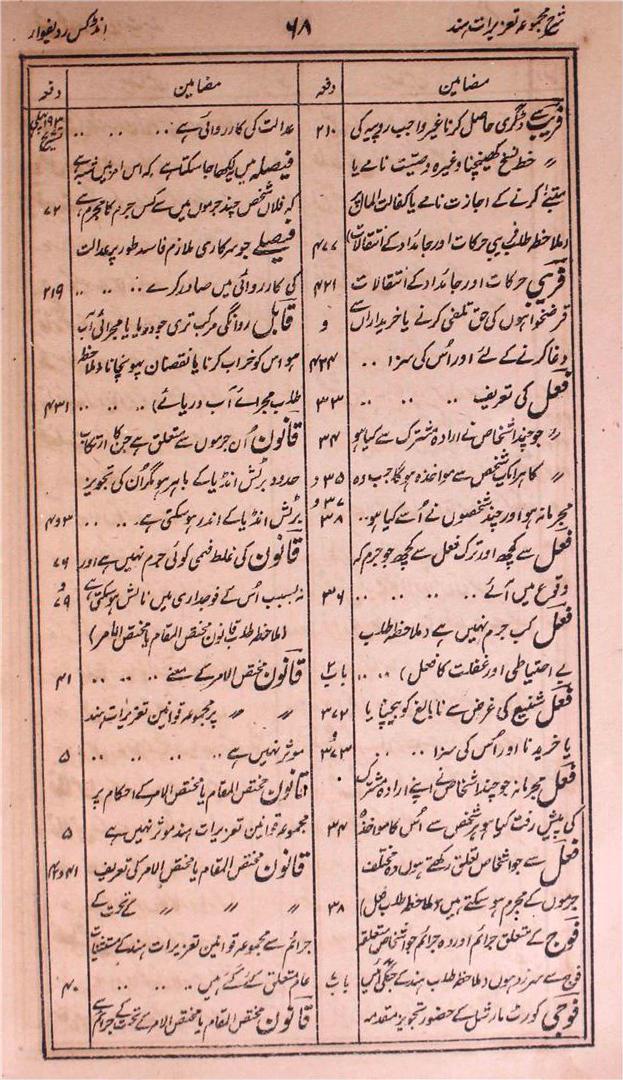 شرح مجموعہ تعزیرات ہند ۶۸ انڈکس ردیفوار
مضامین دفعہ
فریب سے ڈگری حاصل کرنا غیر واجب روپیہ کی ۲۱۰
〃 خط نسخ کھینچنا وغیرہ وصیت نامے یا
متبنے کرنے کے اجازت نامے یا کفالت المال کا
(ملاحظہ طلب فریبی حرکات اور جائداد کے انتقالات) ۴۷۷
فریبی حرکات اور جائداد کے انتقالات ۴۲۱
قرضخواہوں کی حق تلفی کرنے یا خریداراں سے و
دغا کرنے کے لئے اور اُس کی سزا .. ۴۲۴
فعل کی تعریف .. .. .. ۳۳
〃 جو چند اشخاص نے ارادہ مشترک سے کیا ہو ۳۴
〃 کا ہر ایک شخص سے مواخذہ ہوگا جب وہ ۳۵ و
مجرمانہ ہو اور چند شخصوں نے اُسے کیا ہو .. ۳۷ و ۳۸
فعل سے کچھ اور ترک فعل سے کچھ جو جرم کہ
وقوع میں آئے .. .. .. .. ۳۶
فعل کب جرم نہیں ہے (ملاحظہ طلب
بے احتیاطی اور غفلت کا فعل) .. .. باب ۴
فعل شنیع کی غرض سے نابالغ کو بیچنا یا ۳۷۲
یا خریدنا اور اُس کی سزا .. .. و ۳۷۳
فعل مجرمانہ جو چند اشخاص نے اپنے ارادہ مشترک
کی پیش رفت کیا ہو ہر شخص سے اُس کا مواخذہ ۳۴
فعل سے جو اشخاص تعلق رکھتے ہوں وہ مختلف
جرموں کے مجرم ہو سکتے ہیں (ملاحظہ طلب فعل) ۳۸
فوج کے متعلق جرائم اور وہ جرائم جو اشخاص متعلقہ
فوج سے سرزد ہوں (ملاحظہ طلب ہند کے جنگی آئین باب ۷
فوجی کورٹ مارشل کے حضور تجویز مقدمہ
مضامین دفعہ
عدالت کی کارروائی ہے .. .. .. ۱۹۳
فیصلہ میں لکھا جا سکتا ہے کہ اس امر میں شبہ ہے
کہ فلاں شخص چند جرموں میں سے کس جرم کا مجرم ہے ۷۲
فیصلے جو سرکاری ملازم فاسد طور پر عدالت
کی کارروائی میں صادر کرے .. .. .. ۲۱۹
قابل روانگی مرکب تری جو دریا یا مجرائی آب
ہو اس کو خراب کرنا یا نقصان پہونچانا (ملاحظہ
طلب مجرائے آب دریائے) .. .. .. ۴۳۱
قانون اُن جرموں سے متعلق ہے جن کا ارتکاب
حدود برٹش انڈیا کے باہر ہو مگر اُن کی تجویز
برٹش انڈیا کے اندر ہو سکتی ہے .. .. ۳ و ۴
قانون کی غلط فہمی کوئی جرم نہیں ہے اور ۷۶
نہ بسبب اُس کے فوجداری میں نالش ہو سکتی ہے و ۷۹
(ملاحظہ طلب قانون مختص المقام یا مختص الامر)
قانون مختص الامر کے معنے .. .. .. ۴۱
〃 〃 پر مجموعہ قوانین تعزیرات ہند
موثر نہیں ہے .. .. .. .. ۵
قانون مختص المقام یا مختص الامر کے احکام پر
مجموعہ قوانین تعزیرات ہند موثر نہیں ہے ۵
قانون مختص المقام یا مختص الامر کی تعریف ۴۱ و ۴۲
〃 〃 〃 کے تحت کے
جرائم سے مجموعہ قوانین تعزیرات ہند کے مستثنیات
عام متعلق کئے گئے ہیں .. .. .. ۴۰
قانون مختص المقام یا مختص الامر کے تحت کے جرائم سے